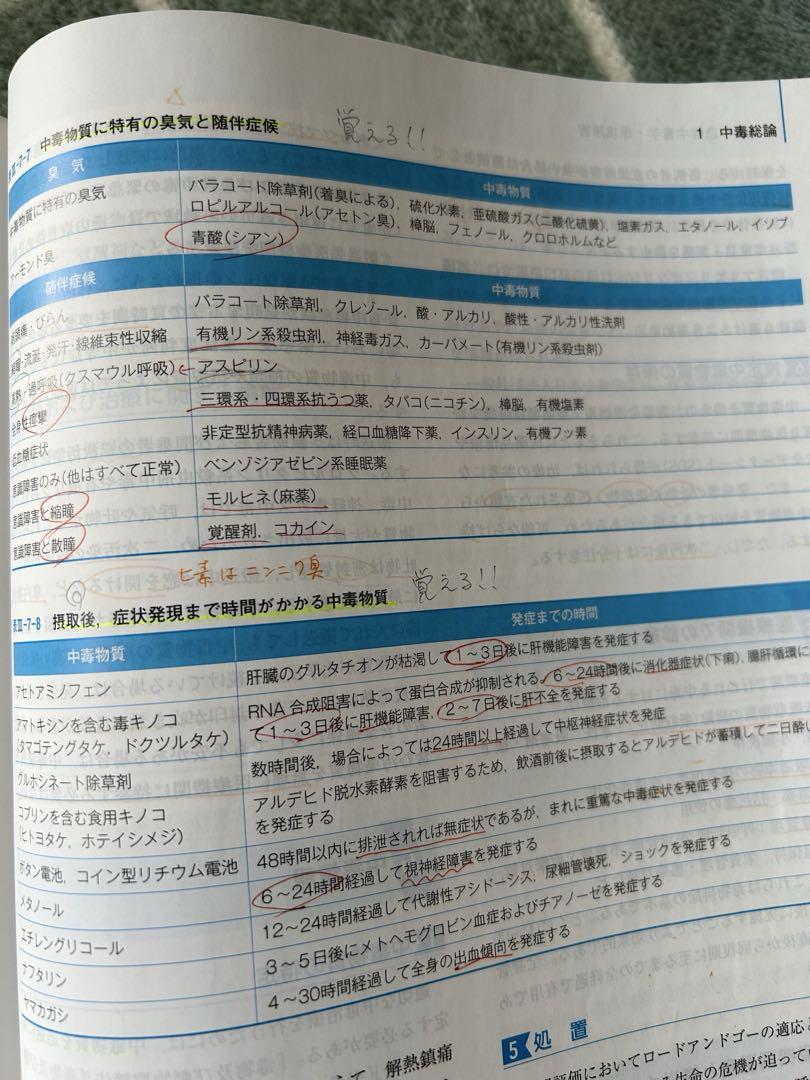 1 中毒総論
表Ⅲ-7-7 中毒物質に特有の臭気と随伴症候 覚える!!
臭気 中毒物質
中毒物質に特有の臭気 パラコート除草剤(着臭による),硫化水素,亜硫酸ガス(二酸化硫黄),塩素ガス,エタノール,イソプ
ロピルアルコール(アセトン臭),樟脳,フェノール,クロロホルムなど
アーモンド臭 青酸(シアン)
随伴症候 中毒物質
咽頭痛・びらん パラコート除草剤,クレゾール,酸・アルカリ,酸性・アルカリ性洗剤
縮瞳・流涎・発汗・線維束性収縮 有機リン系殺虫剤,神経毒ガス,カーバメート(有機リン系殺虫剤)
高熱/過呼吸(クスマウル呼吸) アスピリン
全身性痙攣 三環系・四環系抗うつ薬,タバコ(ニコチン),樟脳,有機塩素
低血糖症状 非定型抗精神病薬,経口血糖降下薬,インスリン,有機フッ素
意識障害のみ(他はすべて正常) ベンゾジアゼピン系睡眠薬
意識障害と縮瞳 モルヒネ(麻薬)
意識障害と散瞳 覚醒剤,コカイン
ヒ素はニンニク臭
表Ⅲ-7-8 摂取後,症状発現まで時間がかかる中毒物質 覚える!!
中毒物質 発症までの時間
アセトアミノフェン 肝臓のグルタチオンが枯渇して1〜3日後に肝機能障害を発症する
アマトキシンを含む毒キノコ RNA合成阻害によって蛋白合成が抑制される。6〜24時間後に消化器症状(下痢),腸肝循環に
(タマゴテングタケ,ドクツルタケ) て1〜3日後に肝機能障害,2〜7日後に肝不全を発症する
グルホシネート除草剤 数時間後,場合によっては24時間以上経過して中枢神経症状を発症
コプリンを含む食用キノコ アルデヒド脱水素酵素を阻害するため,飲酒前後に摂取するとアルデヒドが蓄積して二日酔い
(ヒトヨタケ,ホテイシメジ) を発症する
ボタン電池,コイン型リチウム電池 48時間以内に排泄されれば無症状であるが,まれに重篤な中毒症状を発症する
メタノール 6〜24時間経過して視神経障害を発症する
エチレングリコール 12〜24時間経過して代謝性アシドーシス,尿細管壊死,ショックを発症する
ナフタリン 3〜5日後にメトヘモグロビン血症およびチアノーゼを発症する
ヤマカガシ 4〜30時間経過して全身の出血傾向を発症する
5 処置
解熱鎮痛
評価においてロードアンドゴーの適応と
生命の危機が迫ってい